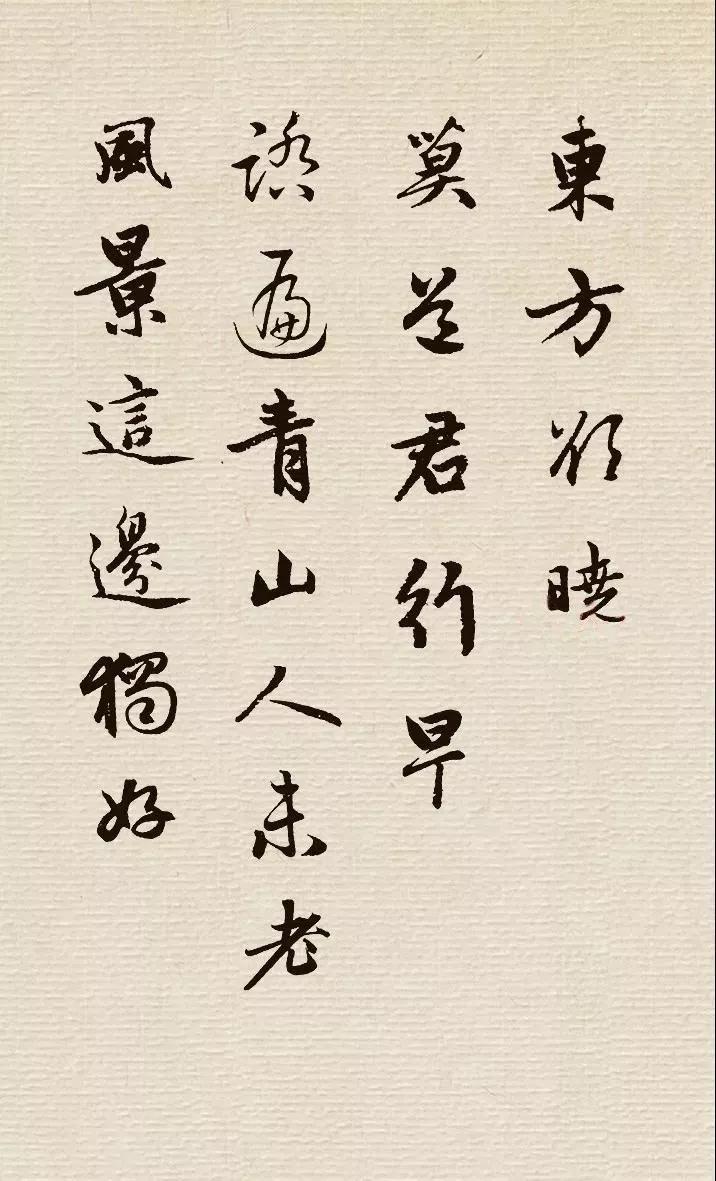 東方欲曉
莫道君行早
踏遍青山人未老
風景這邊獨好